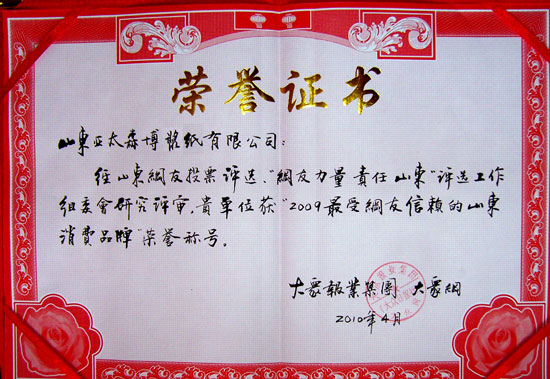 荣誉证书
山東亚太森博漿紙有限公司：
经山東網友投票评选、"網友力量 責任山東"评选工作
组委會研究评审，貴單位获"2009最受網友信賴的山東
消费品牌"荣誉称号。
大眾報業集團 大眾網
2010年4月